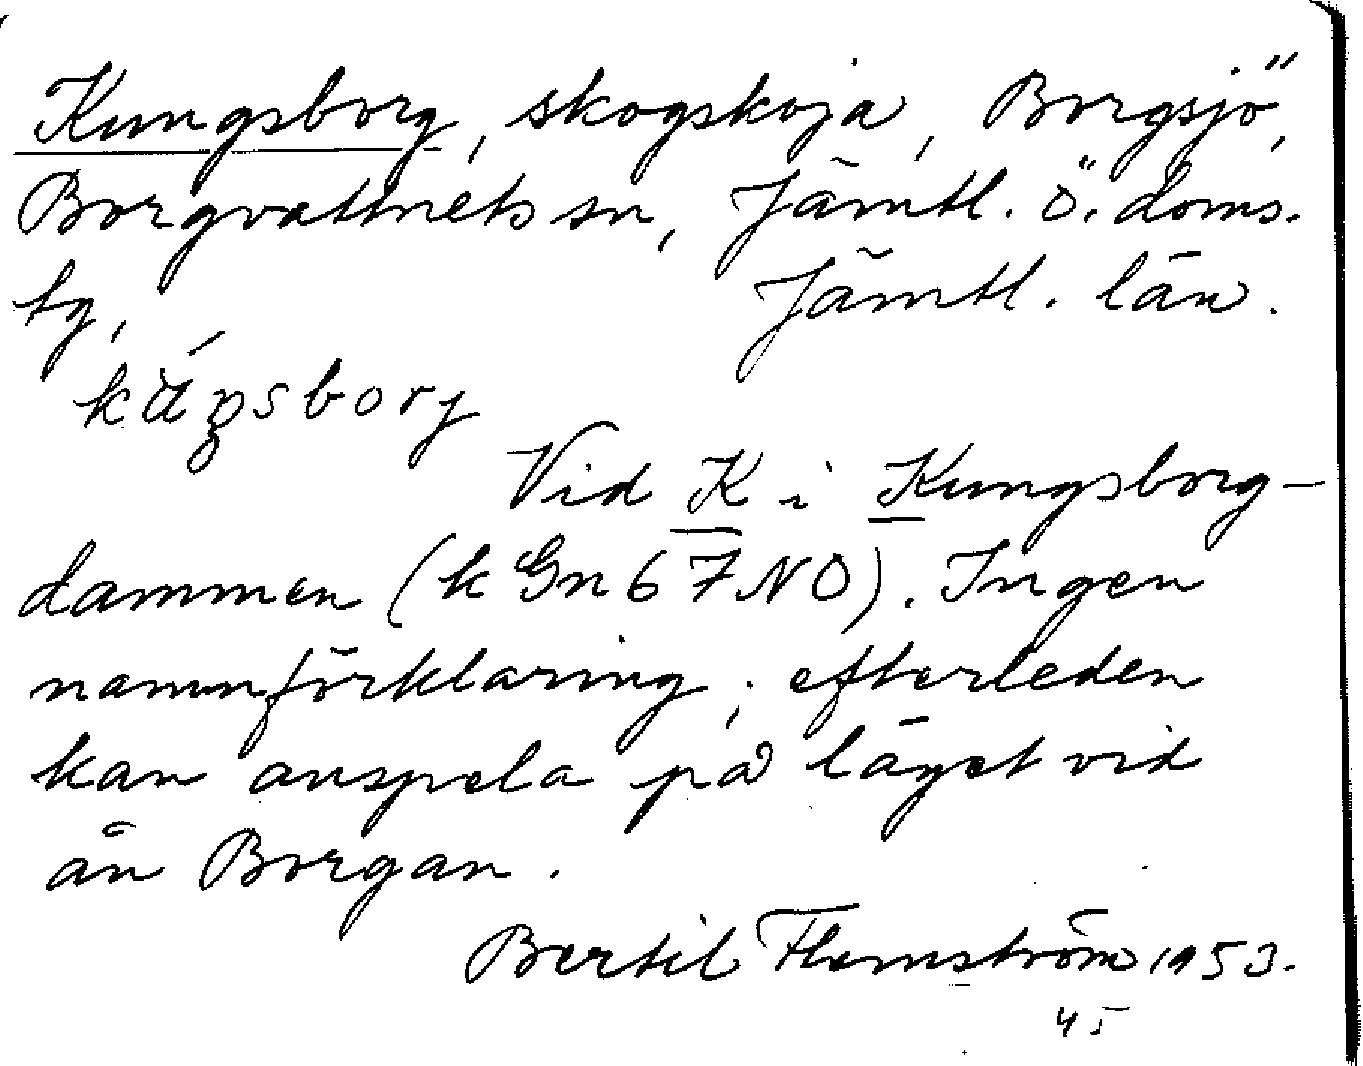 Kungsborg, skogskoja, Borgsjö,
Borgvattnets sn, Jämtl. ö. doms.
tg, Jämtl. län.
Vid K i Kungsborg-
dammen (k Gn 6 7 NO). Ingen
namnförklaring; efterleden
kan anspela på läget vid
ån Borgan.
Bertil Flemström 1953.
45